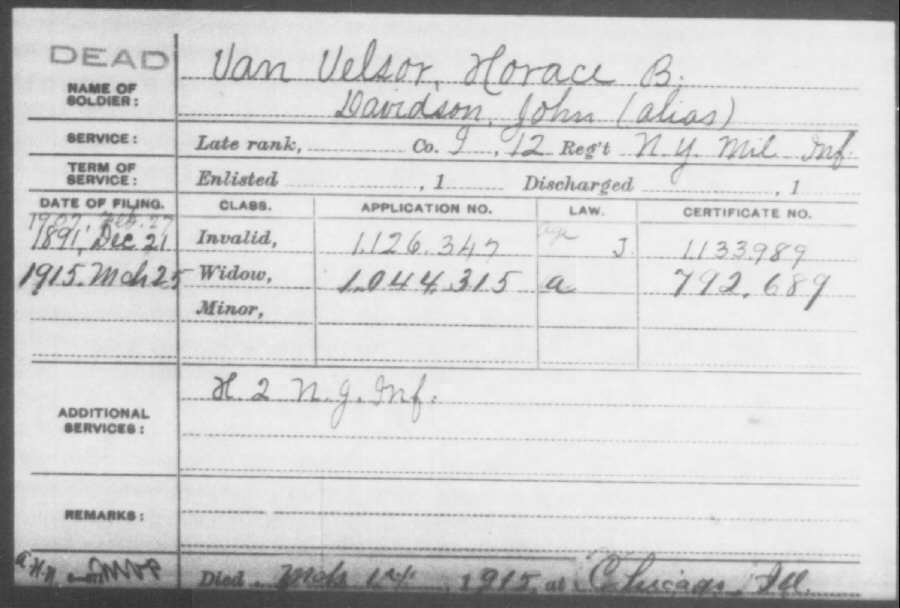 DEAD
NAME OF SOLDIER: Van Velsor, Horace B.
Davidson, John (alias)
SERVICE: Late rank, Co. I, 12 Reg't N.Y. Mil Inf.
TERM OF SERVICE: Enlisted , 1 Discharged , 1
DATE OF FILING. CLASS. APPLICATION NO. LAW. CERTIFICATE NO.
1907 Feb. 27 Age
1891, Dec 21 Invalid, 1.126.347 J 1.133989
1915. Mch 25 Widow, 1.044.315 a 792.689
Minor,
ADDITIONAL SERVICES: H. 2 N.J. Inf.
REMARKS:
Died Mch 1915, at Chicago, Ill.